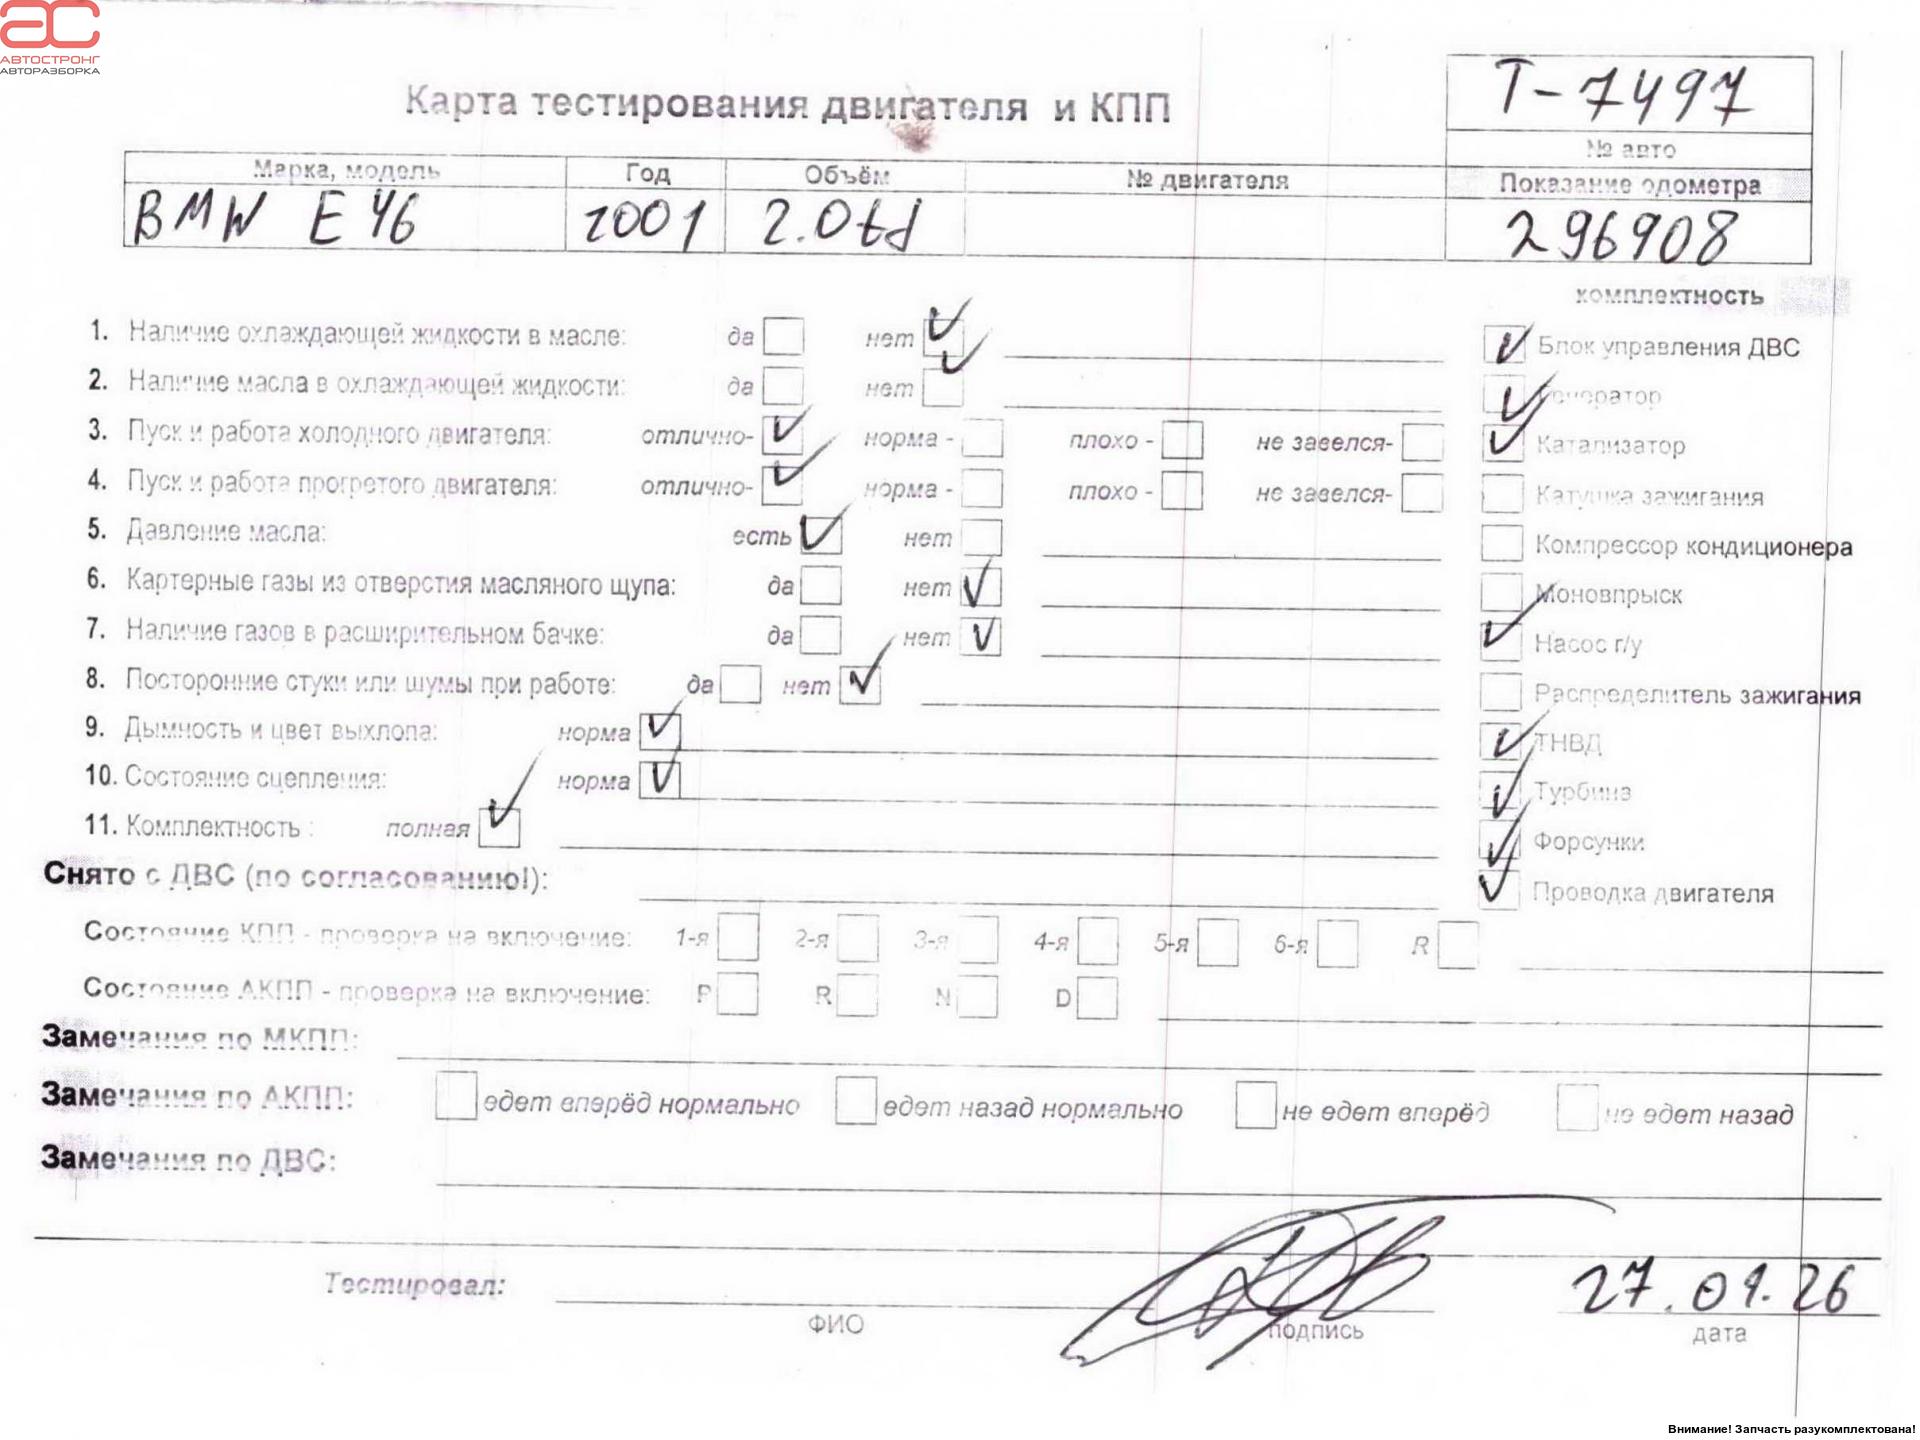 АС
АВТОСТРОНГ
АВТОРАЗБОРКА
Карта тестирования двигателя и КПП
Т-7497
№ авто
Марка, модель Год Объём № двигателя Показание одометра
BMW E46 2001 2.0td 296908
комплектность
1. Наличие охлаждающей жидкости в масле: да нет ✓
2. Наличие масла в охлаждающей жидкости: да нет ✓
3. Пуск и работа холодного двигателя: отлично- ✓ норма - плохо - не завелся-
4. Пуск и работа прогретого двигателя: отлично- ✓ норма - плохо - не завелся-
5. Давление масла: есть ✓ нет
6. Картерные газы из отверстия масляного щупа: да нет ✓
7. Наличие газов в расширительном бачке: да нет ✓
8. Посторонние стуки или шумы при работе: да нет ✓
9. Дымность и цвет выхлопа: норма ✓
10. Состояние сцепления: норма ✓
11. Комплектность : полная ✓
✓ Блок управления ДВС
✓ Генератор
✓ Катализатор
Катушка зажигания
Компрессор кондиционера
Моновпрыск
✓ Насос г/у
Распределитель зажигания
✓ ТНВД
✓ Турбина
✓ Форсунки
✓ Проводка двигателя
Снято с ДВС (по согласованию!):
Состояние КПП - проверка на включение: 1-я 2-я 3-я 4-я 5-я 6-я R
Состояние АКПП - проверка на включение: P R N D
Замечания по МКПП:
Замечания по АКПП: едет вперёд нормально едет назад нормально не едет вперёд не едет назад
Замечания по ДВС:
Тестировал:
27.01.26
ФИО подпись дата
Внимание! Запчасть разукомплектована!